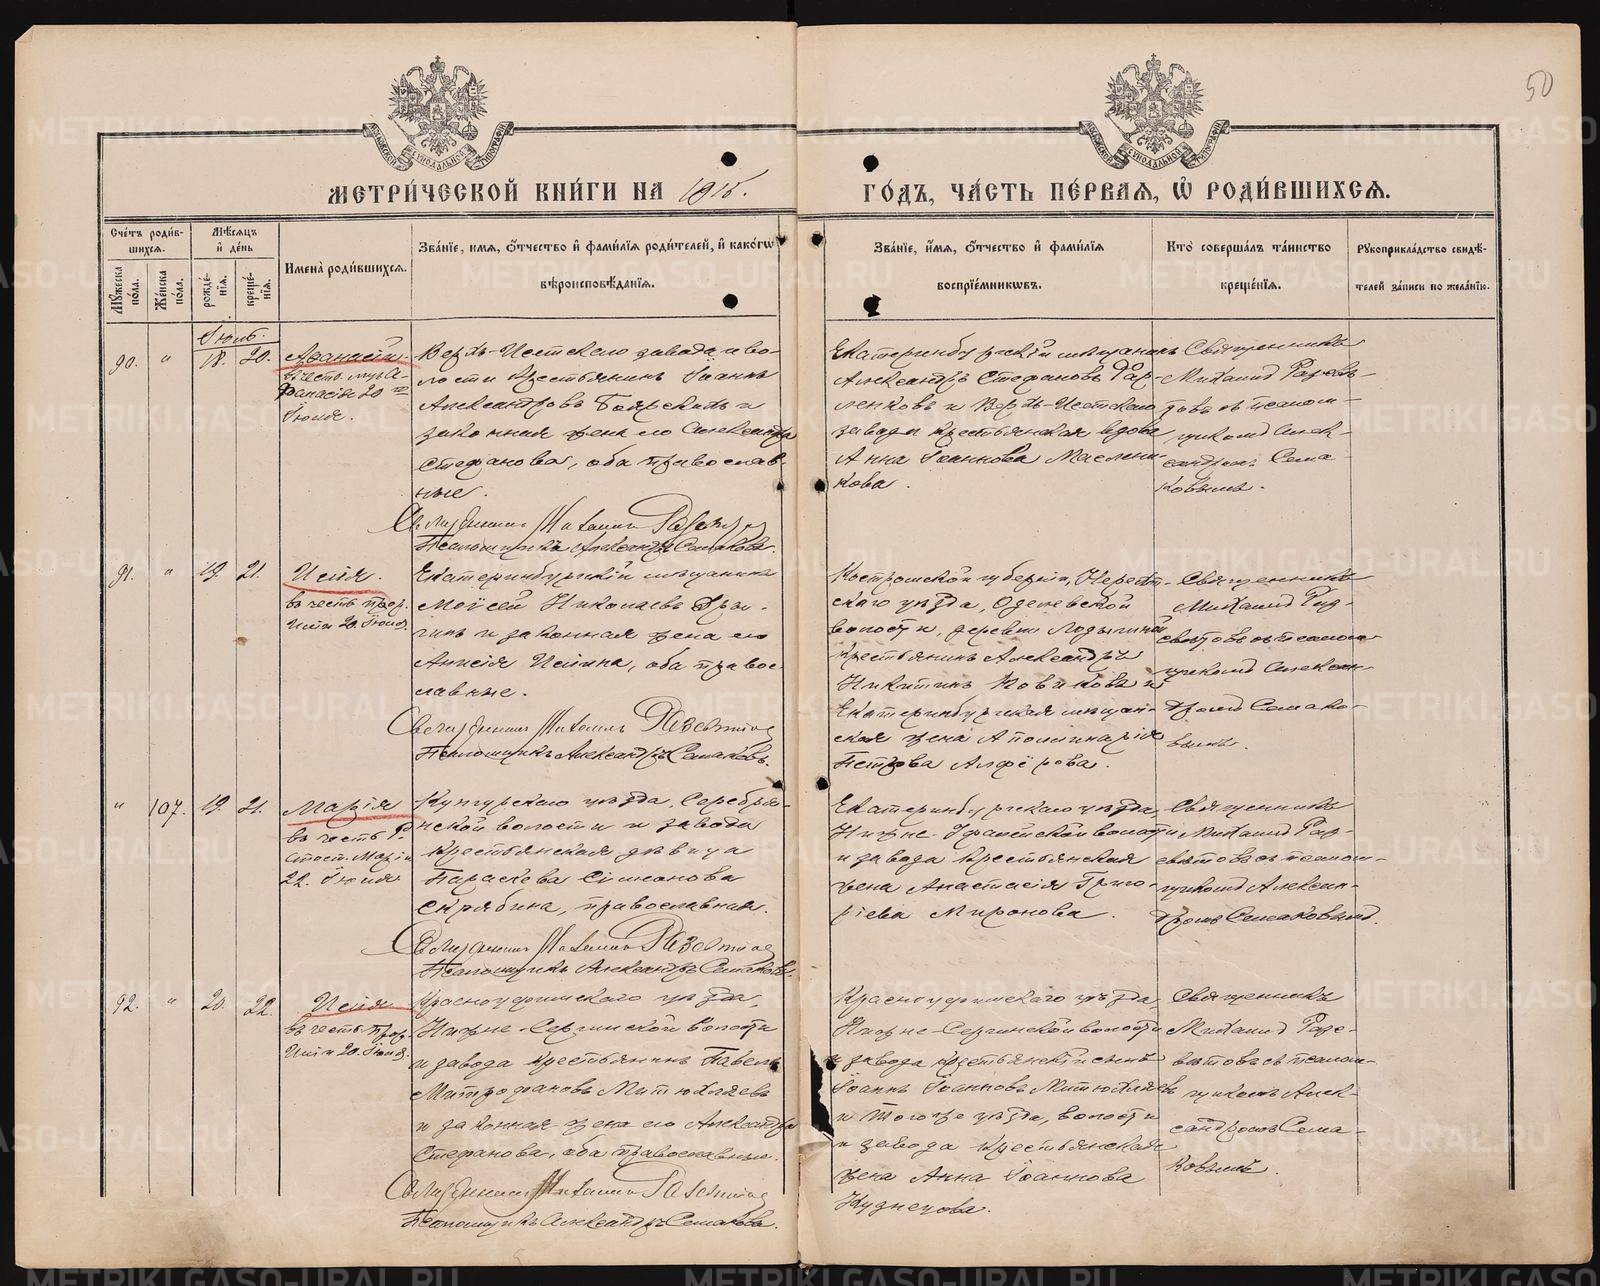 50
МЕТРИ́ЧЕСКОЙ КНИ́ГИ НА 1916. ГО́ДЪ, ЧА́СТЬ ПЕ́РВАЯ, Ѽ РОДИ́ВШИХСѦ.
Сче́тъ роди́в-
шихсѧ.
Мꙋ́жеска по́ла.
Же́нска по́ла.
Мѣ́сѧцъ
и҆ де́нь
рожде́-
нїѧ.
креще́-
нїѧ.
И҆мена̀ роди́вшихсѧ.
Зва́нїе, и҆мѧ, о҆́тчество и҆ фами́лїѧ роди́телей, и҆ како́гѡ
вѣроисповѣ́данїѧ.
Зва́нїе, и҆́мѧ, о҆́тчество и҆ фами́лїѧ
воспрїе́мникѡвъ.
Кто̀ соверша́лъ та́инство
креще́нїѧ.
Рꙋкоприкла́дство свидѣ́-
телей за́писи по жела́нїю.
Іюль.
90. " 18. 20.
Аѳанасій.
въ честь муч. А-
ѳанасія 20го
Іюля.
Верхъ-Исетскаго завода и во-
лости крестьянинъ Іоаннъ
Александровъ Боярскихъ и
законная жена его Александра
Стефанова, оба православ-
ные.
Священникъ Михаилъ
Псаломщикъ Александръ Семаковъ.
Екатеринбургскій мѣщанинъ
Александръ Стефановъ
и Верхъ-Исетскаго
завода крестьянская вдова
Анна Іоаннова Маслени-
кова.
Священникъ
Михаилъ
съ псалом-
щикомъ Алек-
сандромъ Сема-
ковымъ.
91. " 19. 21.
Илія.
въ честь прор.
Иліи 20. Іюля.
Екатеринбургскій мѣщанинъ
Моѵсей Николаевъ
и законная жена его
Анисія Ильина, оба право-
славные.
Священникъ Михаилъ
Псаломщикъ Александръ Семаковъ.
Костромской губерніи, Нерехт-
скаго уѣзда,
волости, деревни
крестьянинъ Александръ
Никитинъ Новиковъ и
Екатеринбургская мѣщан-
ская жена Аполлинарія
Петрова Алфёрова.
Священникъ
Михаилъ
съ псалом-
щикомъ Алексан-
дромъ Семако-
вымъ.
" 107. 19. 21.
Марія
въ честь
Маріи
22. Іюля
Кунгурскаго уѣзда, Серебрян-
ской волости и завода
крестьянская дѣвица
Параскева Симеонова
Скрябина, православная.
Священникъ Михаилъ
Псаломщикъ Александръ Семаковъ.
Екатеринбургскаго уѣзда,
Нижне-Уфалейской волости
и завода крестьянская
жена Анастасія Григо-
ріева Миронова.
Священникъ
Михаилъ
съ псалом-
щикомъ Алексан-
дромъ Семаковымъ.
92. " 20. 22.
Илія
въ честь прор.
Иліи 20. Іюля.
Красноуфимскаго уѣзда,
Нижне-Сергинской волости
и завода крестьянинъ Павелъ
Митрофановъ Митюхляевъ
и законная жена его Александра
Стефанова, оба православные.
Священникъ Михаилъ
Псаломщикъ Александръ Семаковъ.
Красноуфимскаго уѣзда,
Нижне-Сергинской волости
и завода крестьянскій сынъ
Іоаннъ Іоанновъ Митюхляевъ
и того же уѣзда, волости
и завода крестьянская
жена Анна Іоаннова
Кузнецова.
Священникъ
Михаилъ
съ псалом-
щикомъ Алек-
сандромъ Сема-
ковымъ.
METRIKI.GASO-URAL.RU